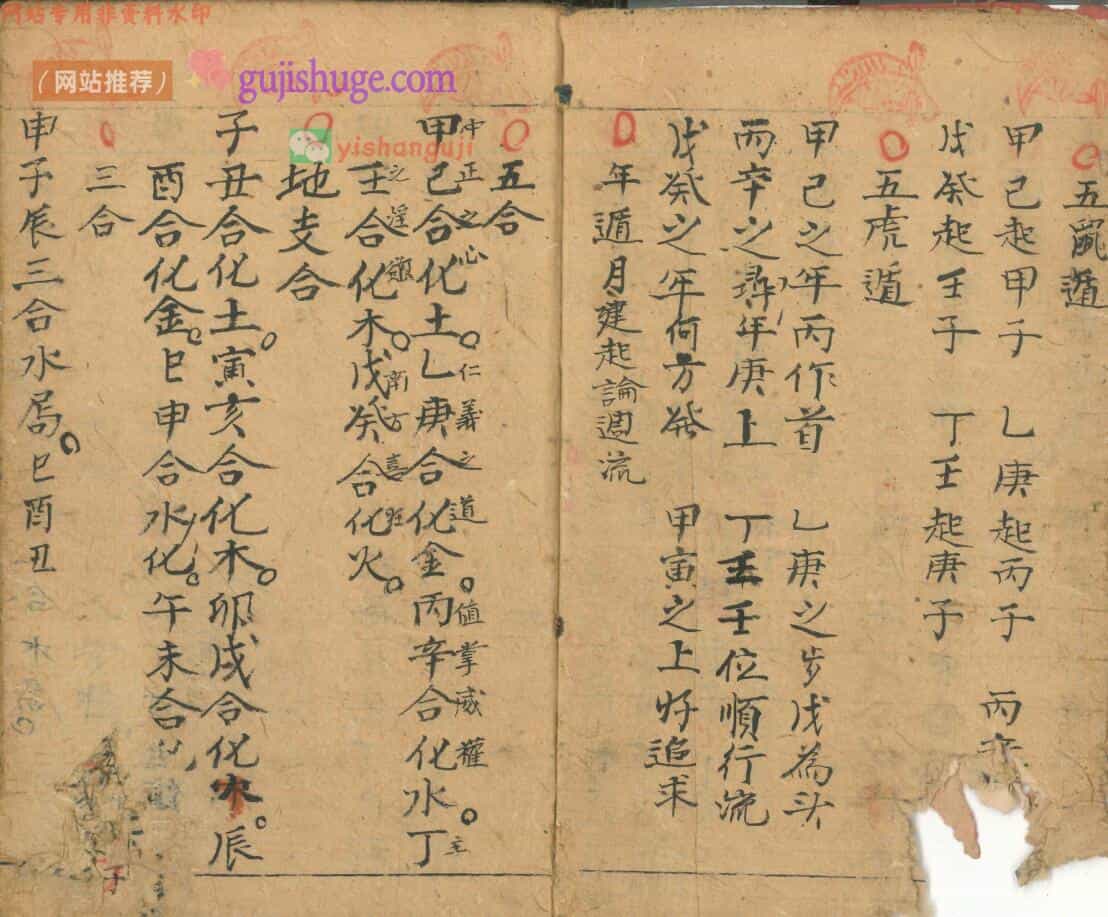 网站专用非资料水印
（网站推荐）
gujishuge.com
yishanguji
五鼠遁
甲己起甲子 乙庚起丙子 丙
戊癸起壬子 丁壬起庚子
五虎遁
甲己之年丙作首 乙庚之步戊為头
丙辛之尋年庚上 丁壬壬位順行流
戊癸之年何方發 甲寅之上好追求
年遁月建起論週流
五合
中正之心 仁義之道 值掌威權 主
甲己合化土。乙庚合化金。丙辛合化水。丁
之淫 南方喜旺
壬合化木。戊癸合化火。
地支合
子丑合化土。寅亥合化木。卯戌合化火。辰
酉合化金。巳申合水化。午未合化
三合
申子辰三合水局。巳酉丑
子